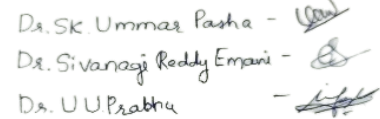 Dr. SK Ummar Pasha -
Dr. Sivanagi Reddy Emani -
Dr. U U Prabhu -